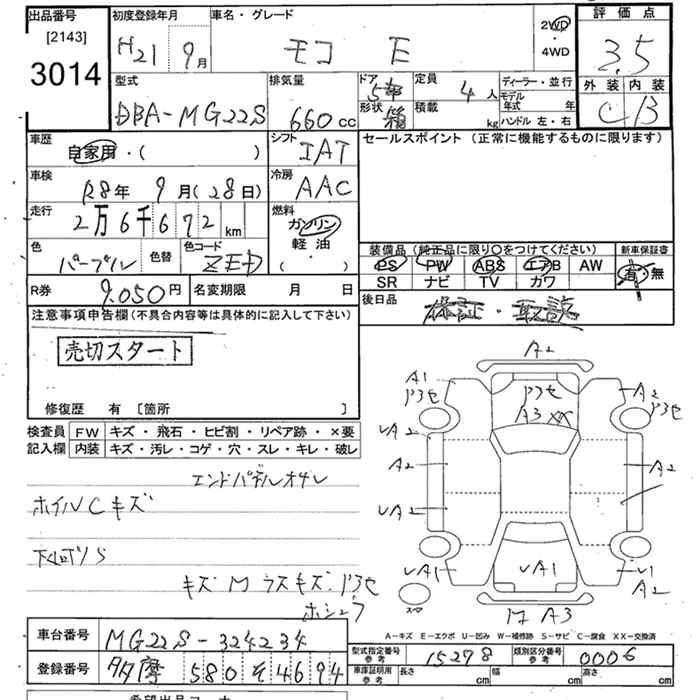 出品番号
[2143]
3014
初度登録年月
H21 9月
車名・グレード
モコ E
2WD
・
4WD
評価点
3.5
外装 内装
C B
型式
DBA-MG22S
排気量
660cc
ドア 5
形状 箱
定員 4人
積載 kg
ディーラー・並行
モデル
年式 年
ハンドル 左・右
車歴
自家用・( )
シフト
IAT
車検
R8年 9月(28日)
冷房
AAC
走行
2万6千672km
燃料
ガソリン
軽油
( ・ )
色
パープル
色替
色コード
R券
9,050円
名変期限 月 日
セールスポイント(正常に機能するものに限ります)
装備品(純正品に限り○をつけてください)
PS PW ABS エアB AW
SR ナビ TV カワ
新車保証書
有・無
後日品
保証・取説
注意事項申告欄(不具合内容等は具体的に記入して下さい)
売切スタート
修復歴 有 [箇所 ]
検査員 FW キズ・飛石・ヒビ割・リペア跡・×要
記入欄 内装 キズ・汚レ・コゲ・穴・スレ・キレ・破レ
ホイルCキズ
A2
A1
A2
A3 XX
UA2
A2
A2
UA2
UA1
UA1
U1
A2
スマ
A3
A-キズ E-エクボ U-凹み W-補修跡 S-サビ C-腐食 XX-交換済
車台番号 MG22S-324234
登録番号 多摩 580 そ 4694
型式指定番号
参考
15278
類別区分番号
参考
0006
車庫証明用
参考
長さ cm 幅 cm 高さ cm
希望出品コーナー